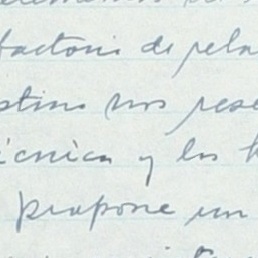 factoria de rela
stino nos rese
écnica y los h
propone un